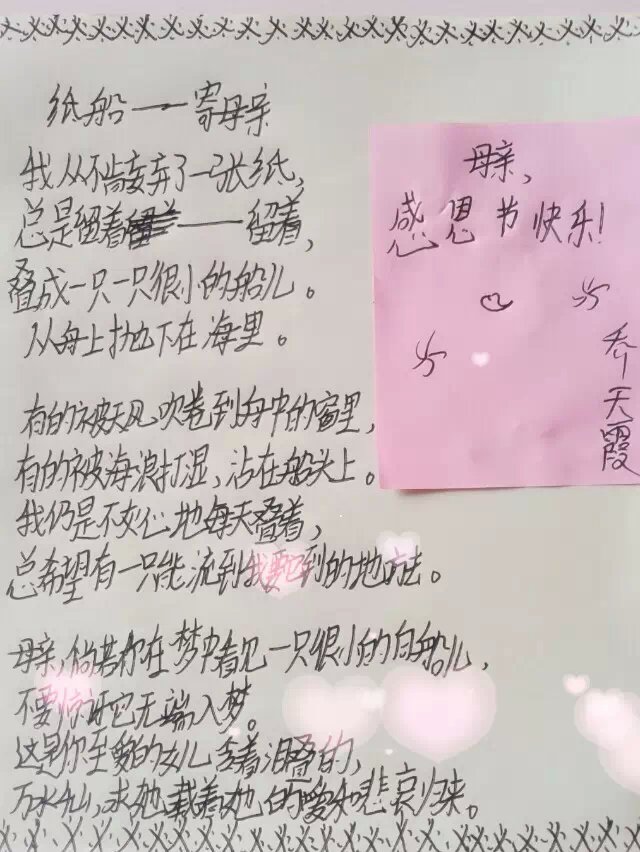 纸船——寄母亲
我从不肯妄弃了一张纸,
总是留着——留着,
叠成一只一只很小的船儿。
从舟上抛下在海里。
有的被天风吹卷到舟中的窗里,
有的被海浪打湿,沾在船头上。
我仍是不灰心地每天叠着,
总希望有一只能流到我要它到的地方去。
母亲,倘若你在梦中看见一只很小的白船儿,
不要惊讶它无端入梦。
这是你至愛的女儿含着泪叠的,
万水千山,求他载着她的愛和悲哀归来。
母亲,
感恩节快乐!
乔天霞